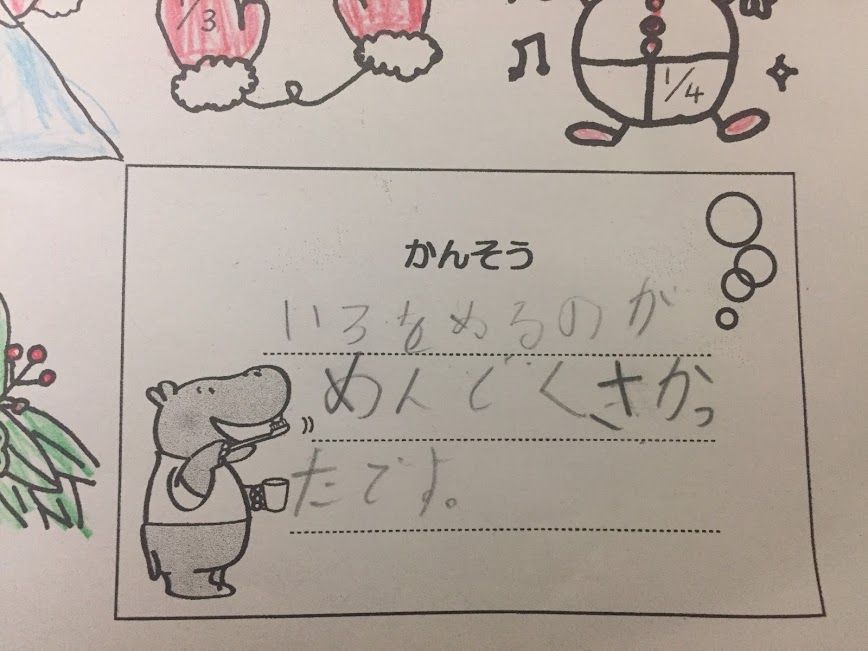 1/3
1/4
かんそう
いろをぬるのが
めんどくさかっ
たです。